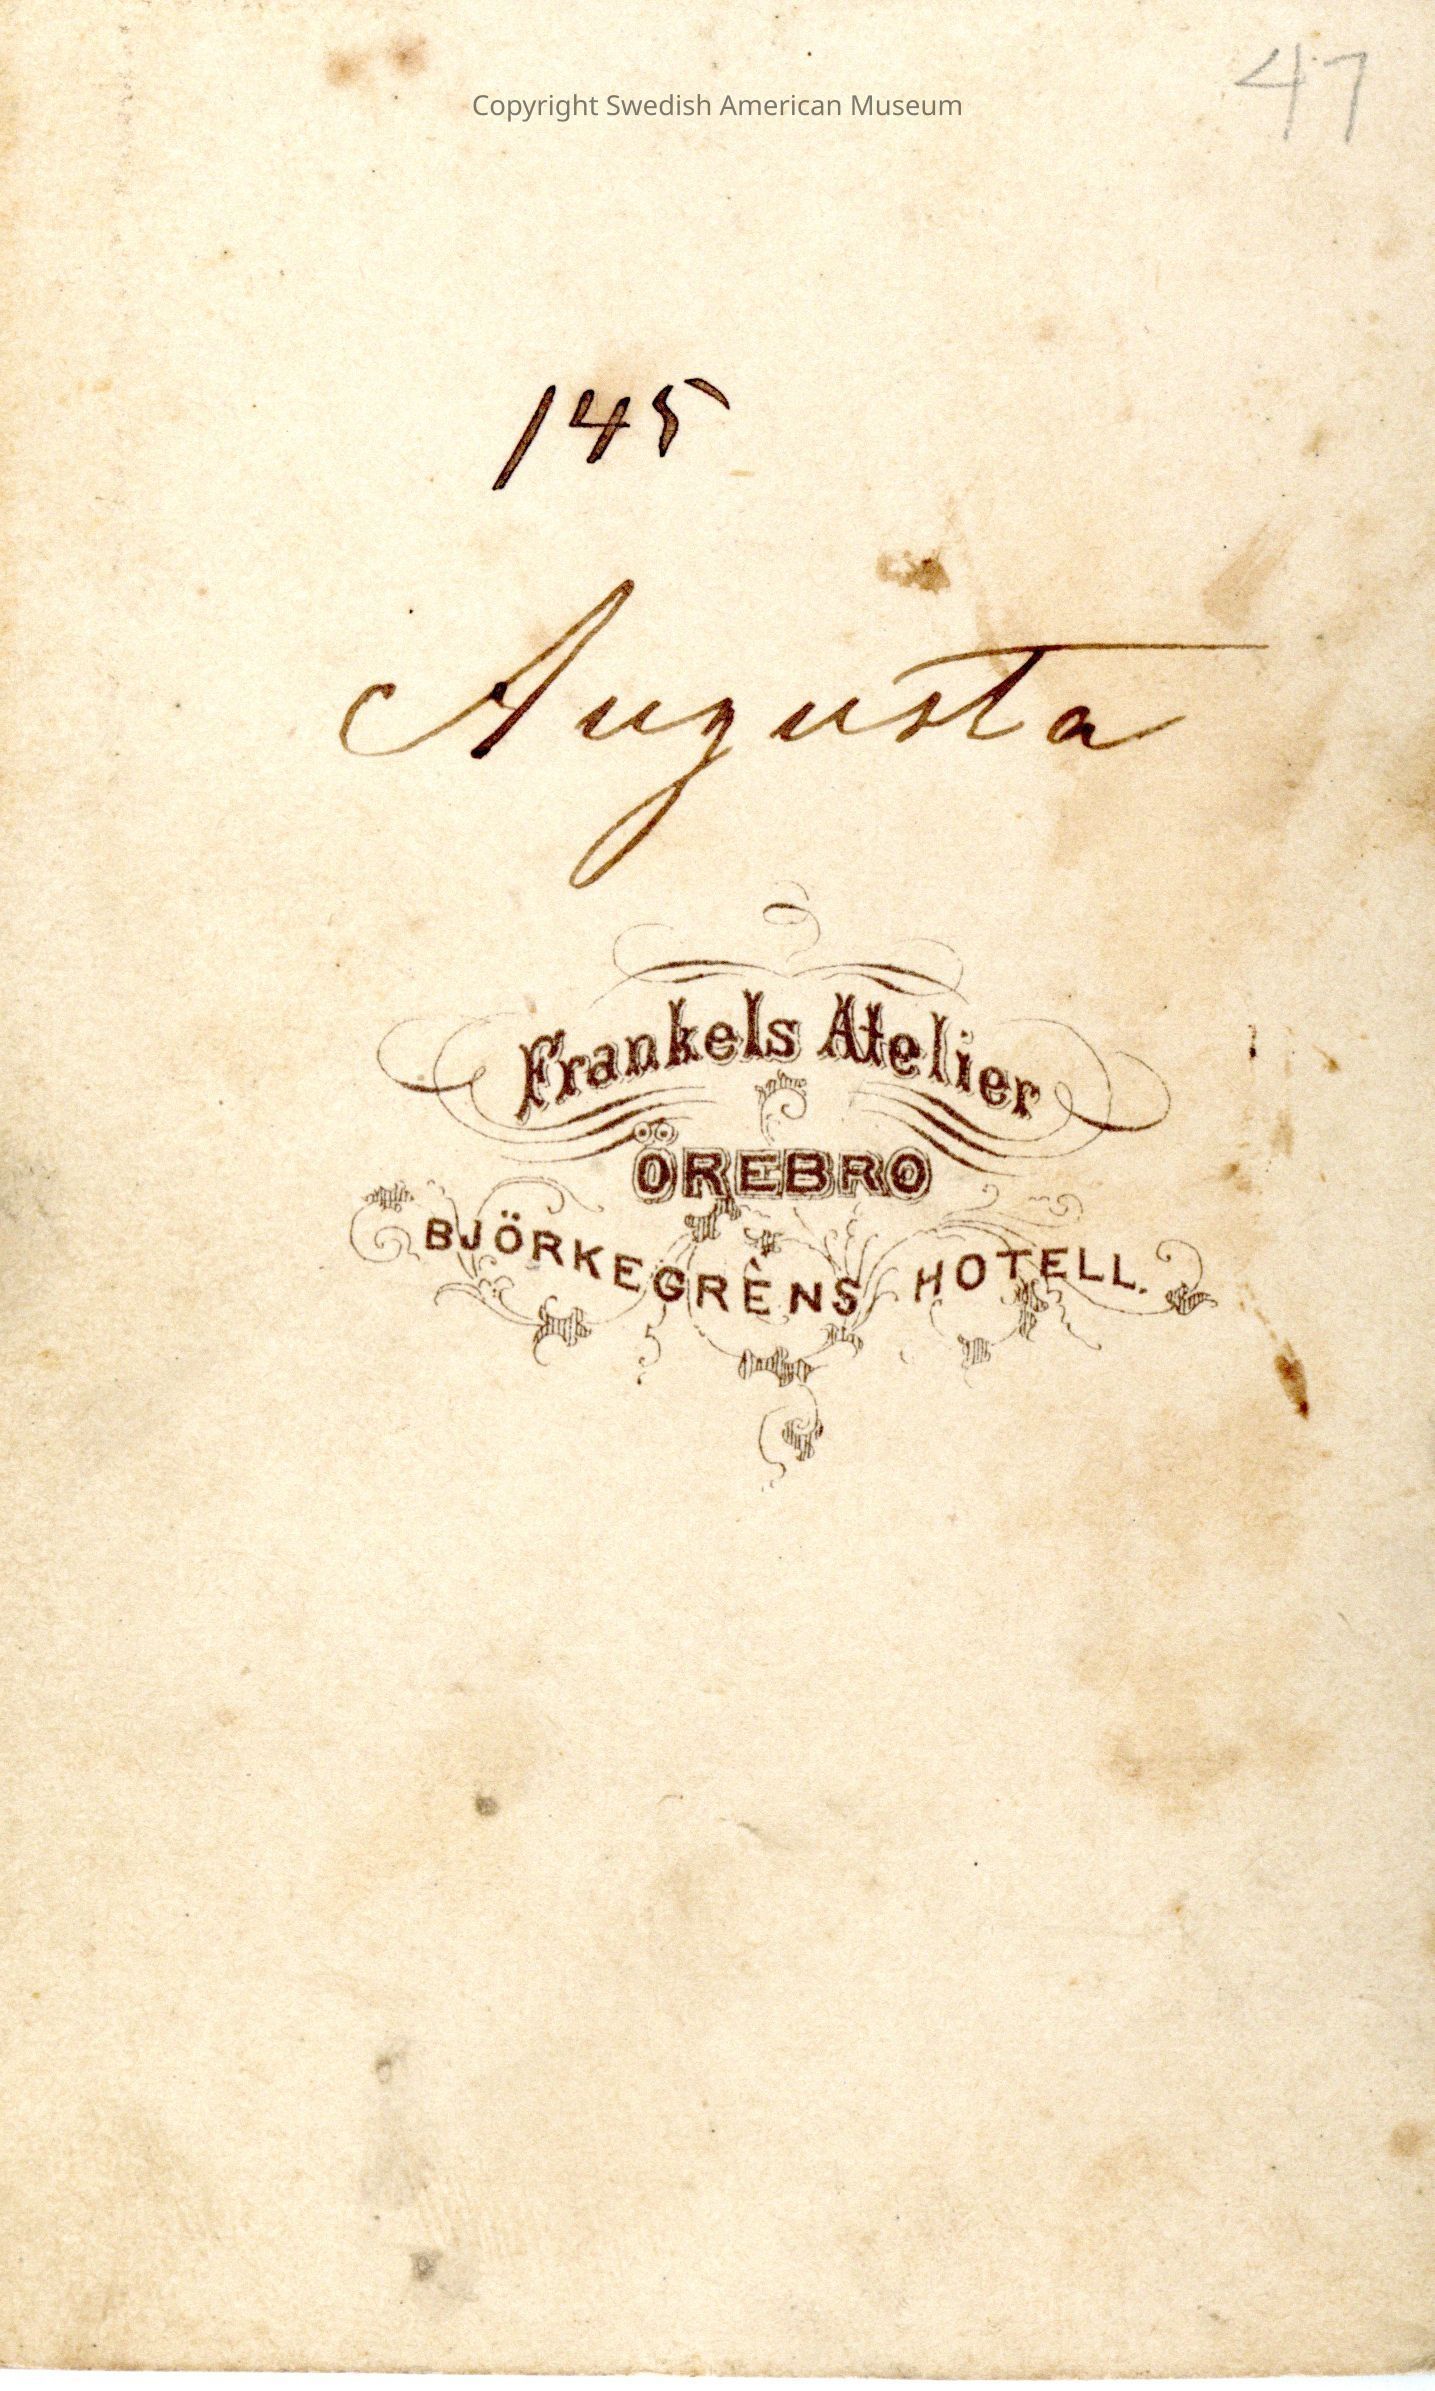 47
Copyright Swedish American Museum
145
Augusta
Frankels Atelier
ÖREBRO
BJÖRKEGRÈNS HOTELL.